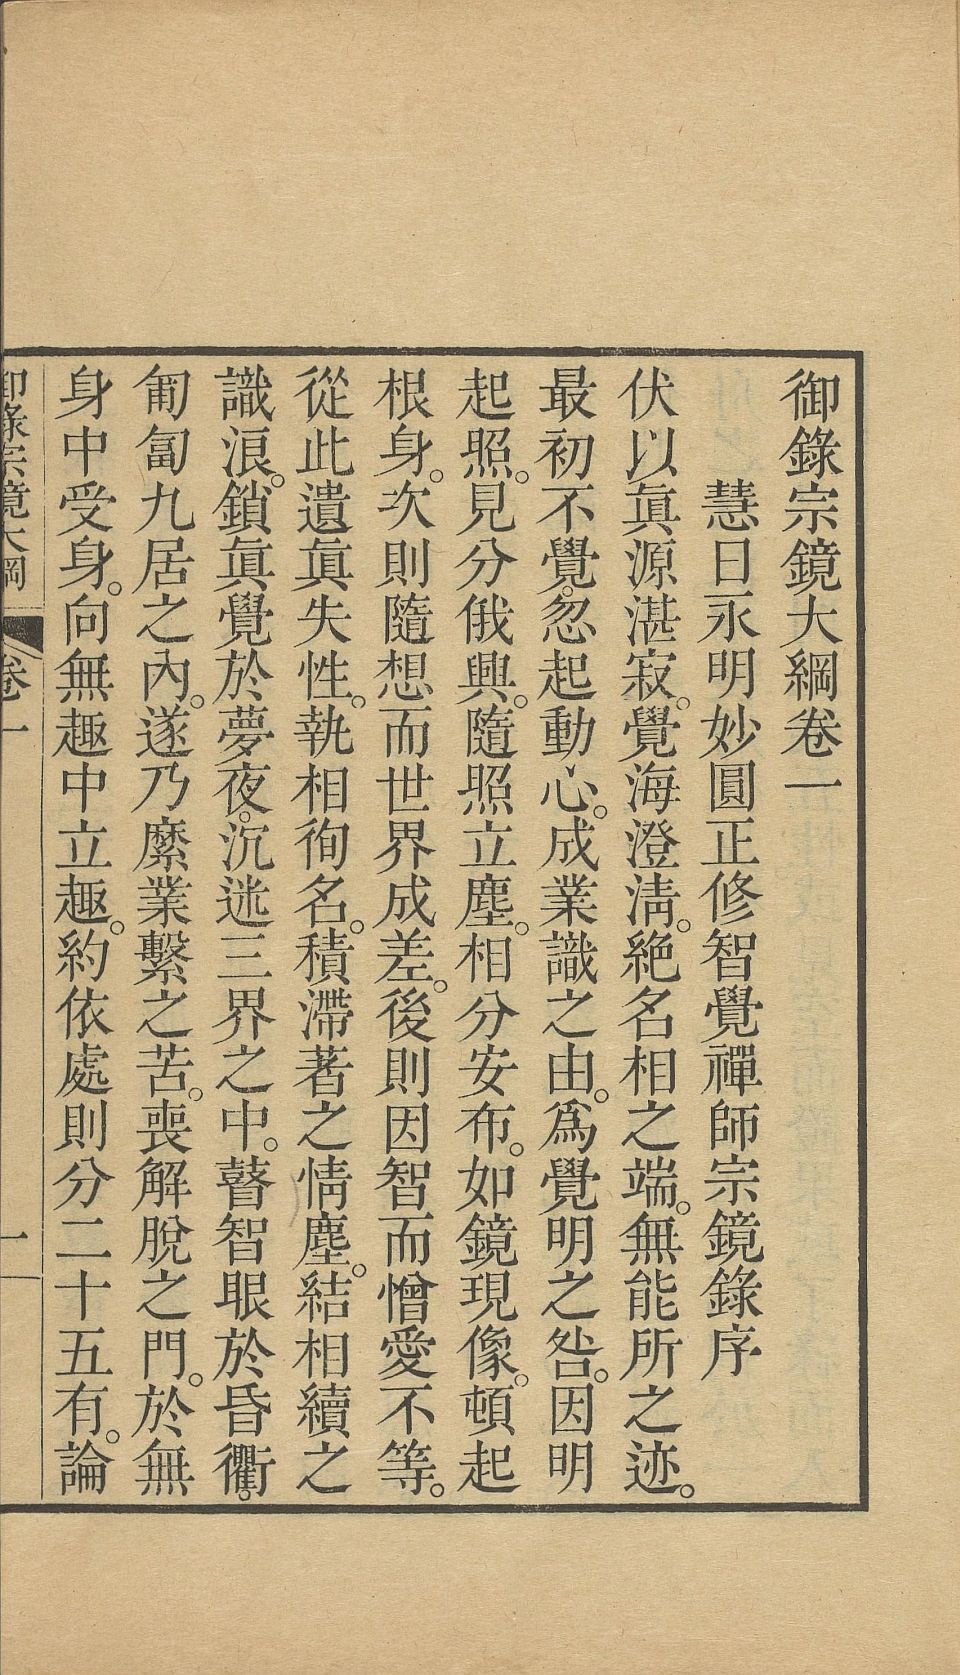 御錄宗鏡大綱卷一
慧日永明妙圓正修智覺禪師宗鏡錄序
伏以眞源湛寂。覺海澄淸。絕名相之端。無能所之迹。
最初不覺。忽起動心。成業識之由。爲覺明之咎。因明
起照。見分俄興。隨照立塵。相分安布。如鏡現像。頓起
根身。次則隨想而世界成差。後則因智而憎愛不等。
從此遺眞失性。執相徇名。積滯著之情塵。結相續之
識浪。鎖眞覺於夢夜。沉迷三界之中。瞽智眼於昏衢。
匍匐九居之內。遂乃縻業繫之苦。喪解脫之門。於無
身中受身。向無趣中立趣。約依處則分二十五有。論
御錄宗鏡大綱
卷一
一